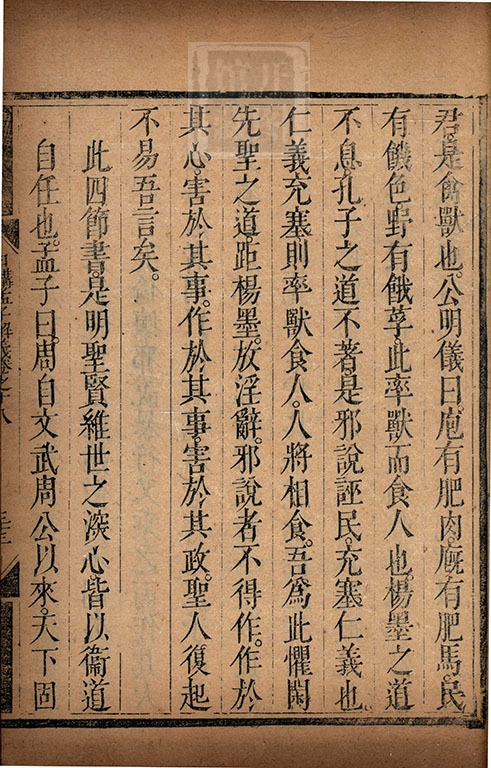 君是禽獸也。公明儀曰。庖有肥肉。廐有肥馬。民
有饑色。野有餓莩。此率獸而食人也。楊墨之道
不息。孔子之道不著。是邪說誣民。充塞仁義也。
仁義充塞。則率獸食人。人將相食。吾爲此懼。閑
先聖之道。距楊墨。放淫辭。邪說者不得作。作於
其心。害於其事。作於其事。害於其政。聖人復起。
不易吾言矣。
此四節書。是明聖賢維世之深心。皆以衞道
自任也。孟子曰。周自文武周公以來。天下固
日講四書解義卷之十八